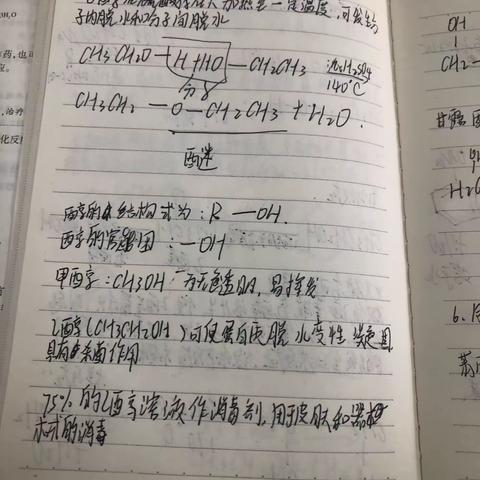 加热至一定温度,可发生分
子内脱水和分子间脱水
CH3CH2O—H+HO—CH2CH3 浓H2SO4 140℃
分子
CH3CH2—O—CH2CH3+H2O.
醚
醇的结构式为:R—OH.
醇的官能团:—OH
甲醇:CH3OH 为无色透明,易挥发
乙醇(CH3CH2OH)可使蛋白质脱水变性 凝固
具有杀菌作用
75%的乙醇溶液作消毒剂,用于皮肤和器械
的消毒
OH
CH2—
甘露
H2C
6.
药,也
应
治疗
化反